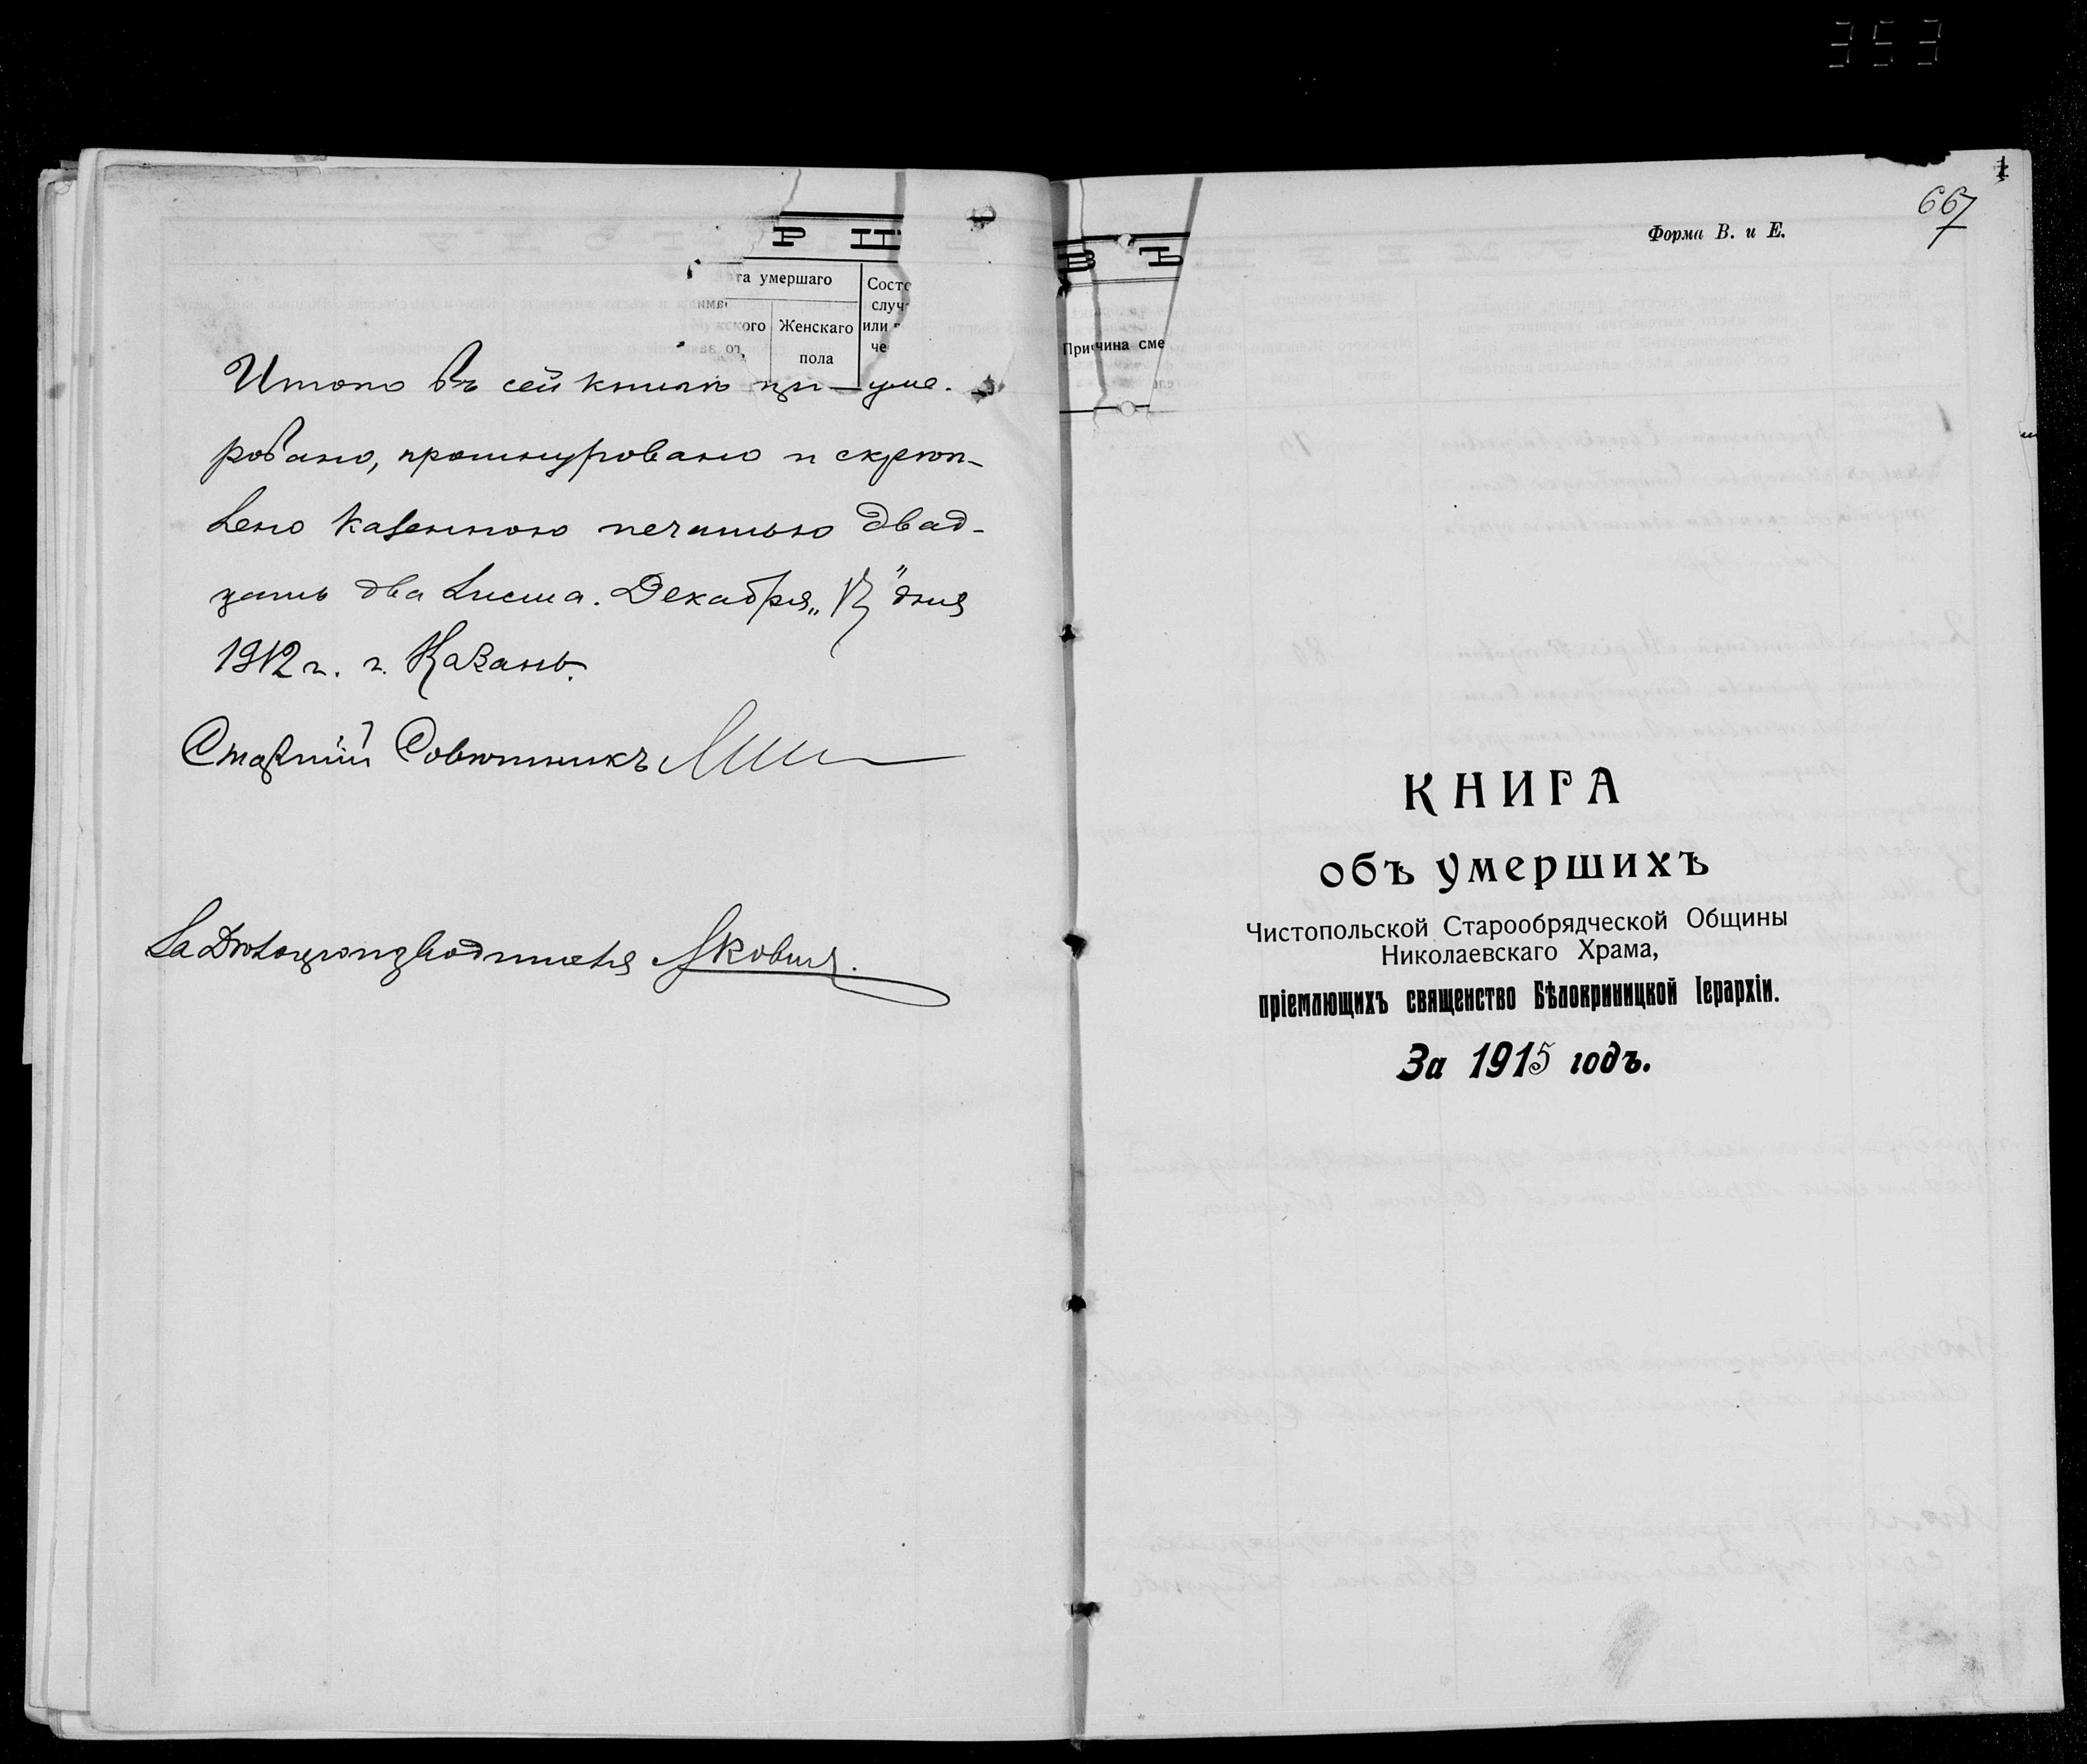 353
Р И
та умершаго
Состо
случ
ского Женскаго или
пола
че
Итого въ сей книгѣ ну-уме-
ровано, прошнуровано и скрѣп-
лено казенною печатью двад-
цать два листа. Декабря „13" дня
1912 г. г. Казань.
Старшій Совѣтникъ
За Дѣлопроизводителя Яковлев.
В Ъ
Причина сме
1
667
Форма В. и Е.
КНИГА
объ умершихъ
Чистопольской Старообрядческой Общины
Николаевскаго Храма,
пріемлющихъ священство Бѣлокриницкой Іерархіи.
За 1915 годъ.